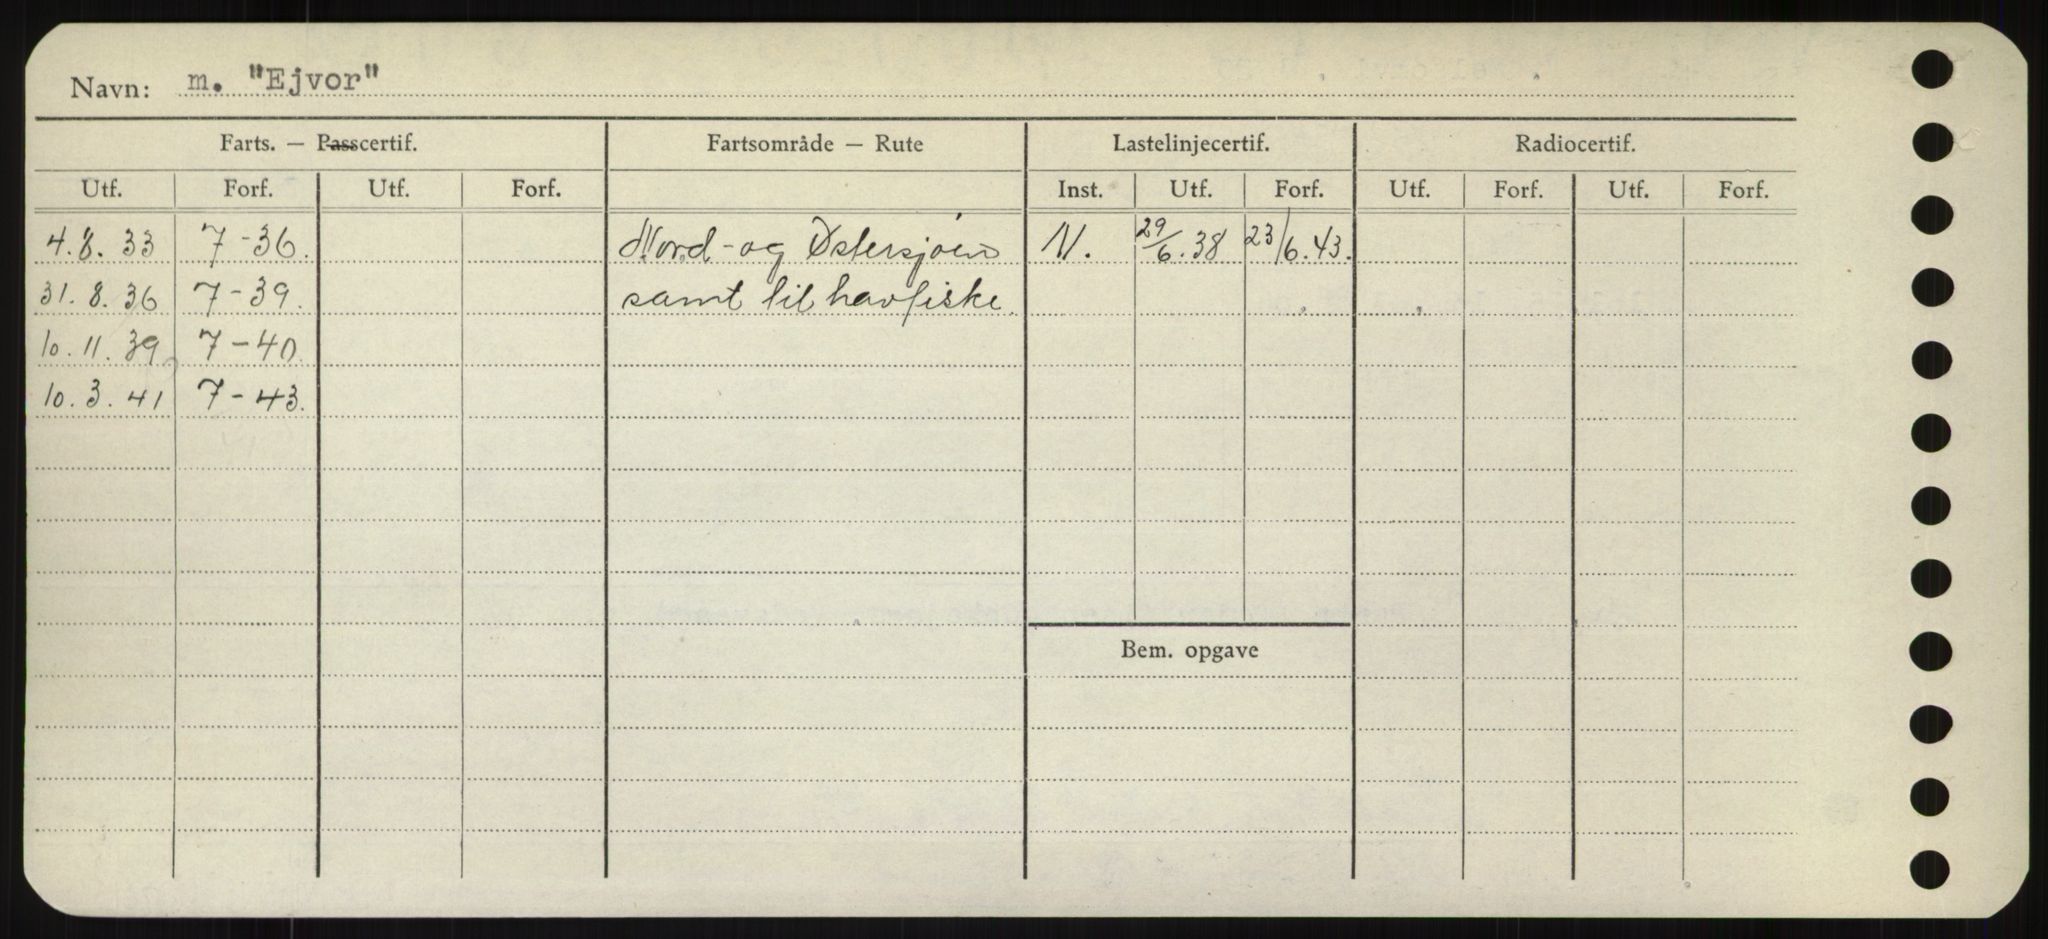 Navn: m. "Ejvor"
Farts. — Passcertif. Fartsområde — Rute Lastelinjecertif. Radiocertif.
Utf. Forf. Utf. Forf. Inst. Utf. Forf. Utf. Forf. Utf. Forf.
4.8.33 7-36. Nord- og Østersjøen N. 29/6.38 23/6.43.
31.8.36 7-39. samt til havfiske.
10.11.39 7-40.
10.3.41 7-43.
Bem. opgave